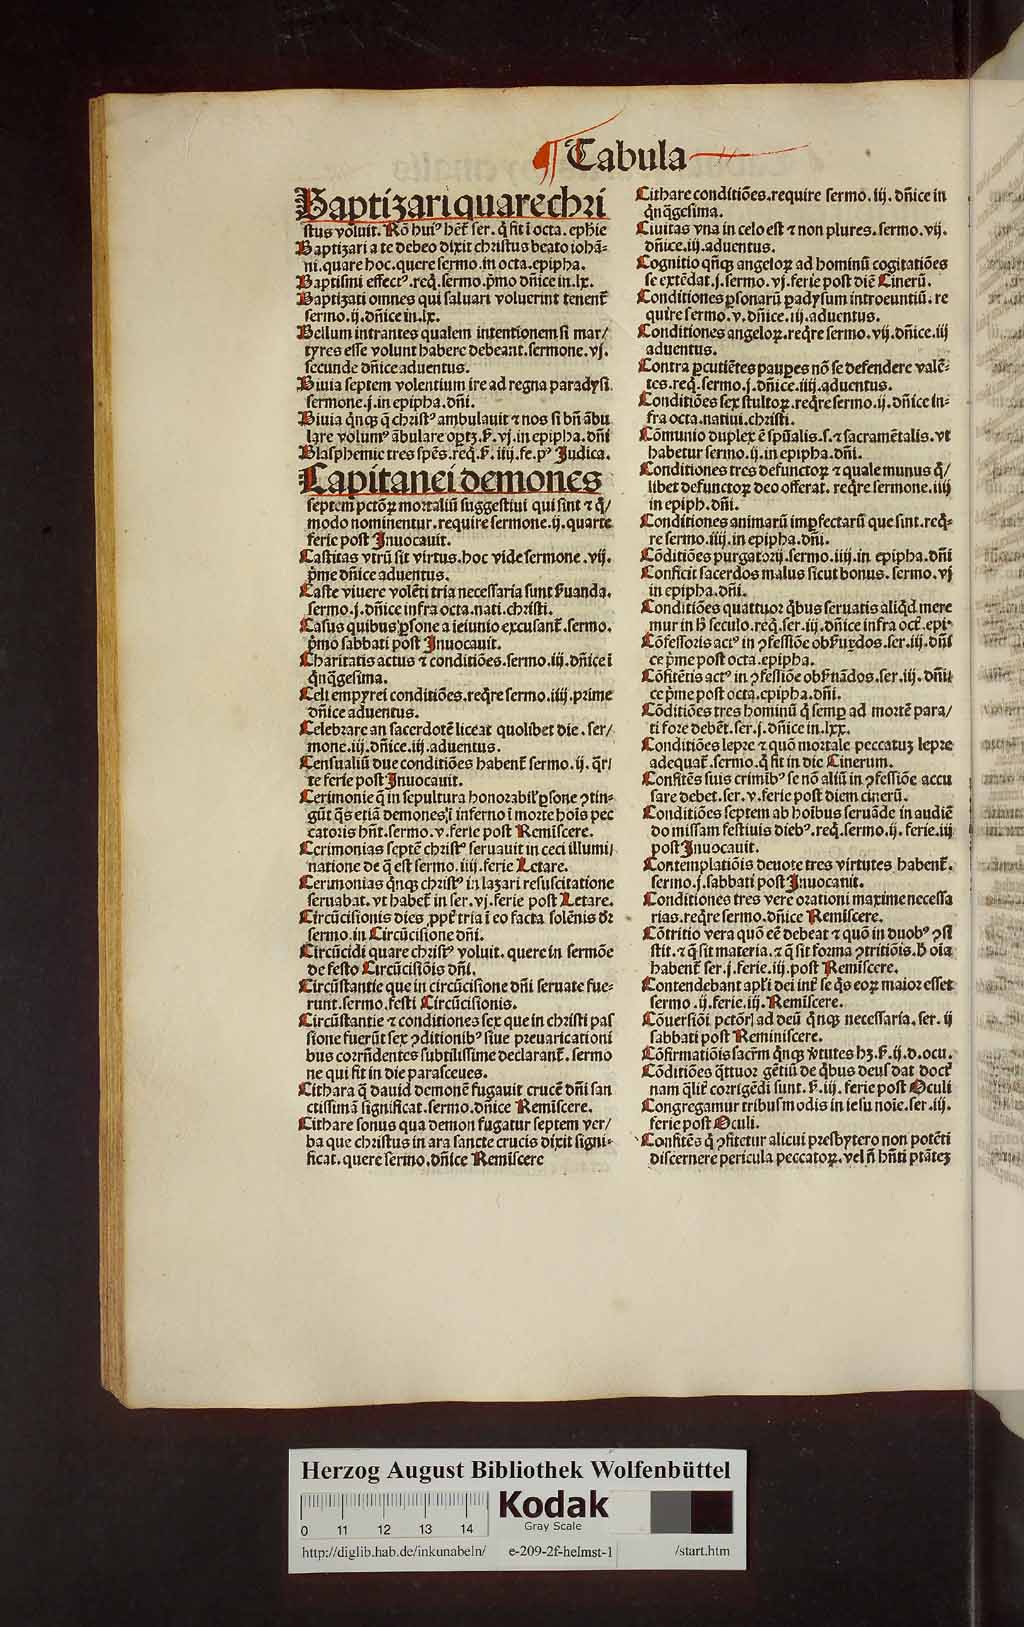 ¶ Tabula
Baptizari quare chri
stus voluit. Rõ huiꝰ hẽt ſer. q̃ fit ĩ octa. ephie
Baptizari a te debeo dixit chriſtus beato iohã⸗
ni. quare hoc. quere ſermo. in octa. epipha.
Baptiſmi effectꝰ. req̃. ſermo. p̃mo dñice in. lx.
Baptizati omnes qui ſaluari voluerint tenent̃
ſermo. ij. dñice in. lx.
Bellum intrantes qualem intentionem ſi mar/
tyres eſſe volunt habere debeant. ſermone. vj.
ſecunde dñice aduentus.
Biuia ſeptem volentium ire ad regna paradyſi.
ſermone. j. in epipha. dñi.
Biuia q̃nqꝫ q̃ chriſtꝰ ambulauit ⁊ nos ſi bñ ãbu
lare volumꝰ ãbulare optꝫ. ẜ. vj. in epipha. dñi
Blaſphemie tres ſpẽs. req̃. ẜ. iiij. fe. pꝰ Judica.
Capitanei demones
ſeptem pctõꝝ mortaliũ ſuggeſtiui qui ſint ⁊ q̃/
modo nominentur. require ſermone. ij. quarte
ferie poſt Jnuocauit.
Caſtitas vtrũ ſit virtus. hoc vide ſermone. vij.
p̃me dñice aduentus.
Caſte viuere volẽti tria neceſſaria ſunt ẜuanda.
ſermo. j. dñice infra octa. nati. chriſti.
Caſus quibus ꝑſone a ieiunio excuſant̃. ſermo.
p̃mo ſabbati poſt Jnuocauit.
Charitatis actus ⁊ conditiões. ſermo. iij. dñice ĩ
q̃nq̃geſima.
Celi empyrei conditiões. req̃re ſermo. iiij. prime
dñice aduentus.
Celebrare an ſacerdotẽ liceat quolibet die. ſer/
mone. iij. dñice. iij. aduentus.
Cenſualiũ due conditiões habent̃ ſermo. ij. q̃r/
te ferie poſt Jnuocauit.
Cerimonie q̃ in ſepultura honorabil̕ ꝑſone ↄtin⸗
gũt q̃s etiã demones, ĩ inferno ĩ morte hoĩs pec
catoris hñt. ſermo. v. ferie poſt Remiſcere.
Cerimonias ſeptẽ chriſtꝰ ſeruauit in ceci illumi/
natione de q̃ eſt ſermo. iiij. ferie Letare.
Cerimonias q̃nqꝫ chriſtꝰ in lazari reſuſcitatione
ſeruabat. vt habet̃ in ſer. vj. ferie poſt Letare.
Circũciſionis dies ꝓpt̃ tria ĩ eo facta ſolẽnis dr̃
ſermo. in Circũciſione dñi.
Circũcidi quare chriſtꝰ voluit. quere in ſermõe
de feſto Circũciſiõis dñi.
Circũſtantie que in circũciſione dñi ſeruate fue⸗
runt. ſermo. feſti Circũciſionis.
Circũſtantie ⁊ conditiones ſex que in chriſti paſ
ſione fuerũt ſex ↄditionibꝰ ſiue preuaricationi
bus corrñdentes ſubtiliſſime declarant̃. ſermo
ne qui fit in die paraſceues.
Cithara q̃ dauid demonẽ fugauit crucẽ dñi ſan
ctiſſimã ſignificat. ſermo. dñice Remiſcere.
Cithare ſonus qua demon fugatur ſeptem ver/
ba que chriſtus in ara ſancte crucis dixit ſigni⸗
ficat. quere ſermo. dñice Remiſcere
Cithare conditiões. require ſermo. iij. dñice in
q̃nq̃geſima.
Ciuitas vna in celo eſt ⁊ non plures. ſermo. vij.
dñice. iij. aduentus.
Cognitio qñqꝫ angeloꝝ ad hominũ cogitatiões
ſe extẽdat. j. ſermo. vj. ferie poſt diẽ Cinerũ.
Conditiones ꝑſonarũ ꝑadyſum introeuntiũ. re
quire ſermo. v. dñice. iij. aduentus.
Conditiones angeloꝝ. req̃re ſermo. vij. dñice. iij
aduentus.
Contra ꝑcutiẽtes pauꝑes nõ ſe defendere valẽ⸗
tes. req̃. ſermo. j. dñice. iiij. aduentus.
Conditiões ſex ſtultoꝝ. req̃re ſermo. ij. dñice in⸗
fra octa. natiui. chriſti.
Cõmunio duplex ẽ ſpũalis. ſ. ⁊ ſacramẽtalis. vt
habetur ſermo. ij. in epipha. dñi.
Conditiones tres defunctoꝝ ⁊ quale munus q̃/
libet defunctoꝝ deo offerat. req̃re ſermone. iiij
in epiph. dñi.
Conditiones animarũ imꝑfectarũ que ſint. req̃⸗
re ſermo. iiij. in epipha. dñi.
Cõditiões purgatorij. ſermo. iiij. in epipha. dñi
Conficit ſacerdos malus ſicut bonus. ſermo. vj
in epipha. dñi.
Conditiões quattuor q̃bus ſeruatis aliq̃d mere
mur in h̃ ſeculo. req̃. ſer. iij. dñice infra oct̃. epi⸗
Cõfeſſoris actꝰ in ↄfeſſiõe obẜuãdos. ſer. iij. dñi
ce p̃me poſt octa. epipha.
Cõfitẽtis actꝰ in ↄfeſſiõe obẜuãdos. ſer. iij. dñi
ce p̃me poſt octa. epipha. dñi.
Cõditiões tres hominũ q̃ ſemꝑ ad mortẽ para/
ti fore debẽt. ſer. j. dñice in. lxx.
Conditiões lepre ⁊ quõ mortale peccatuꝫ lepre
adequat̃. ſermo. q̃ fit in die Cinerum.
Confitẽs ſuis crimibꝰ ſe nõ aliũ in ↄfeſſiõe accu
ſare debet. ſer. v. ferie poſt diem cinerũ.
Conditiões ſeptem ab hoibus ſeruãde in audiẽ
do miſſam feſtiuis diebꝰ. req̃. ſermo. ij. ferie. iij
poſt Jnuocauit.
Contemplatiõis deuote tres virtutes habent̃.
ſermo. j. ſabbati poſt Jnuocauit.
Conditiones tres vere orationi maxime neceſſa
rias. req̃re ſermo. dñice Remiſcere.
Cõtritio vera quõ eẽ debeat ⁊ quõ in duobꝰ ↄſi
ſtit. ⁊ q̃ ſit materia. ⁊ q̃ ſit forma ↄtritiõis. h̃ oĩa
habent̃ ſer. j. ferie. iij. poſt Remiſcere.
Contendebant apl̕i dei int̃ ſe q̃s eoꝝ maior eſſet
ſermo. ij. ferie. iij. Remiſcere.
Cõuerſiõi pctõrꝫ ad deũ q̃nqꝫ neceſſaria. ſer. ij
ſabbati poſt Reminiſcere.
Cõfirmatiõis ſacrm̃ q̃nqꝫ ṽtutes hꝫ. ẜ. ij. d. ocu.
Cõditiões q̃ttuor gẽtiũ de q̃bus deus dat doct̃
nam q̃lit̃ corrigẽdi ſunt. ẜ. iij. ferie poſt Oculi
Congregamur tribus modis in ieſu noĩe. ſer. iij.
ferie poſt Oculi.
Confitẽs q̃ ↄfitetur alicui presbytero non potẽti
diſcernere pericula peccatoꝝ. vel ñ hñti ptãteꝫ
Herzog August Bibliothek Wolfenbüttel
Kodak
Gray Scale
0 11 12 13 14
http://diglib.hab.de/inkunabeln/ e-209-2f-helmst-1 /start.htm